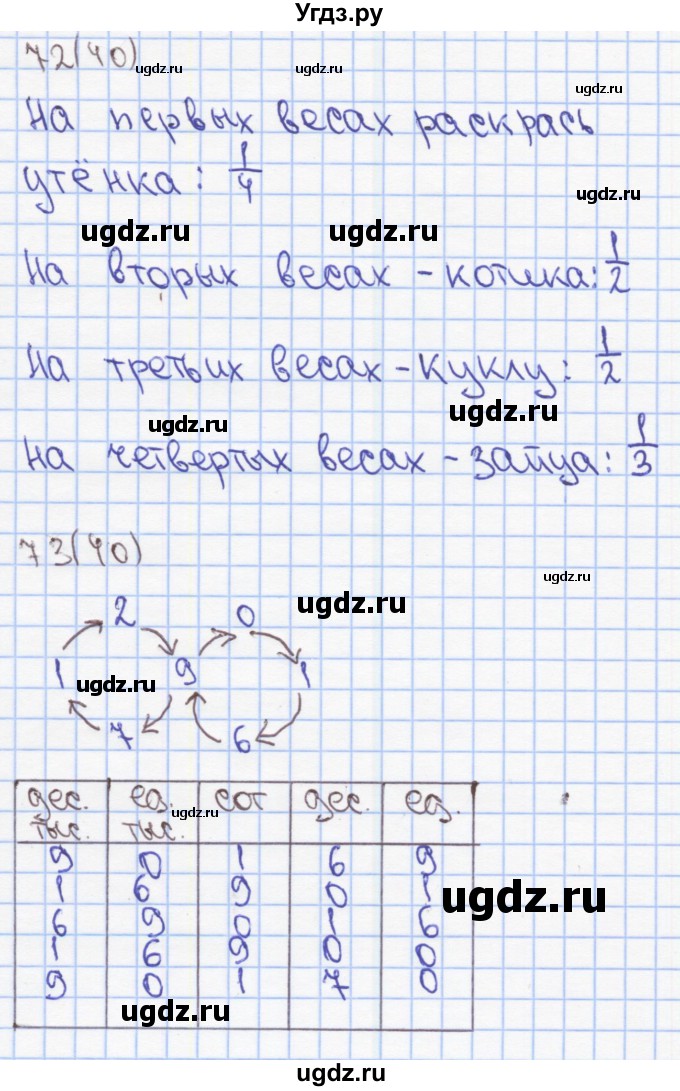 Угдз.ру
72(40)
ugdz.ru ugdz.ru ugdz.ru
На первых весах раскрась
утёнка: 1/4
ugdz.ru
ugdz.ru ugdz.ru
На вторых весах - котика: 1/2
На третьих весах - куклу: 1/2
ugdz.ru
ugdz.ru
На четвертых весах - зайца: 1/3
73(40)
ugdz.ru
ugdz.ru
2 0
1 9 1
ugdz.ru
7 6
дес. тыс. ед. тыс. сот дес. ед.
ugdz.ru
9 0 1 6 9
1 6 9 0 1
ugdz.ru
6 9 0 1 6
1 6 9 0 0
9 0 1 7 0
ugdz.ru
ugdz.ru ugdz.ru